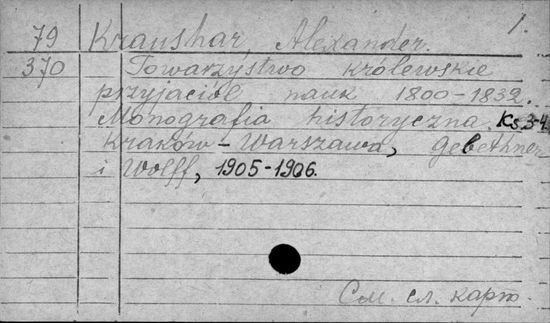 1.
79 Kraushar, Alexander.
370 Towarzystwo królewskie
przyjaciół nauk 1800-1832.
Monografia historyczna. Ks. 3-4.
Kraków-Warszawa, Gebethner
i Wolff, 1905-1906.
См. сл. карт.